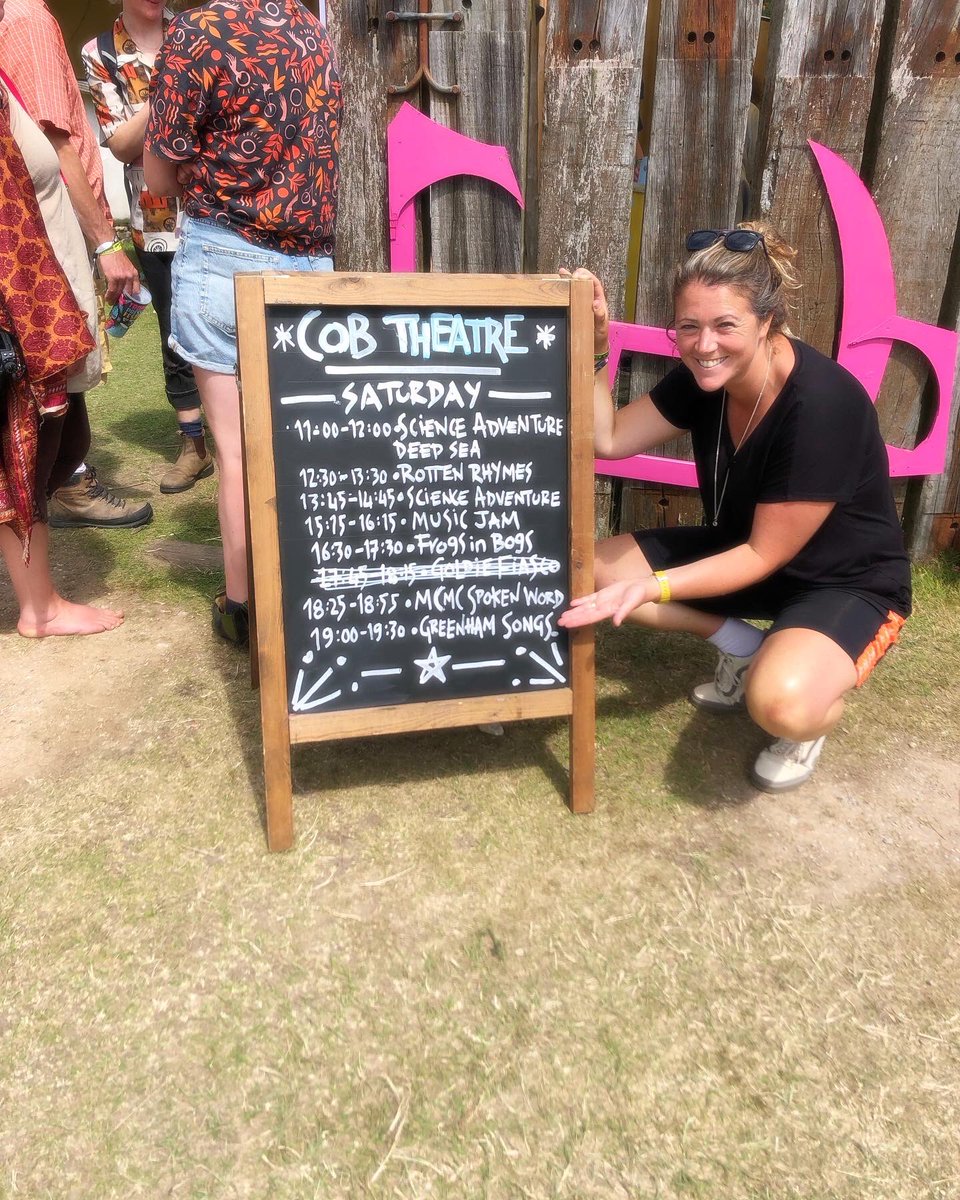 COB THEATRE
SATURDAY
11:00-12:00 • SCIENCE ADVENTURE
DEEP SEA
12:30-13:30 • ROTTEN RHYMES
13:45-14:45 • SCIENCE ADVENTURE
15:15-16:15 • MUSIC JAM
16:30-17:30 • FROGS in BOGS
17:45-18:15 • GOLDIE FIASCO
18:25-18:55 • MCMC SPOKEN WORD
19:00-19:30 • GREENHAM SONGS